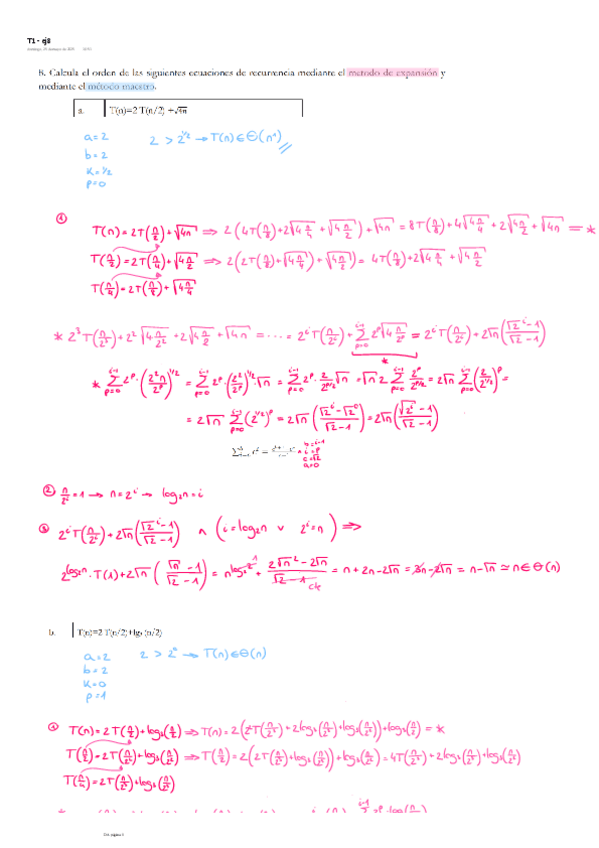 T1 - ej8
8. Calcula el orden de las siguientes ecuaciones de recurrencia mediante el metodo de expansión y
mediante el método maestro.
a. T(n)=2 T(n/2) +√4n
a = 2
b = 2
K = 1/2
p = 0
2 > 2^{1/2} → T(n) ∈ Θ(n¹)
① T(n) = 2T(n/2) + √4n ⇒ 2(4T(n/8) + 2√(4 n/4) + √(4 n/2)) + √4n = 8T(n/8) + 4√(4 n/4) + 2√(4 n/2) + √4n = *
T(n/2) = 2T(n/4) + √(4 n/2) ⇒ 2(2T(n/8) + √(4 n/4)) + √(4 n/2) = 4T(n/8) + 2√(4 n/4) + √(4 n/2)
T(n/4) = 2T(n/8) + √(4 n/4)
* 2³T(n/2³) + 2²√(4 n/2²) + 2√(4 n/2) + √4n = ... = 2^i T(n/2^i) + Σ_{p=0}^{i-1} 2^p √(4 n/2^p) = 2^i T(n/2^i) + 2√n ((√2^i - 1)/(√2 - 1))
* Σ_{p=0}^{i-1} 2^p · (2²n/2^p)^{1/2} = Σ_{p=0}^{i-1} 2^p · (2²/2^p)^{1/2} · √n = Σ_{p=0}^{i-1} 2^p · 2/2^{p/2} √n = √n 2 Σ_{p=0}^{i-1} 2^p/2^{p/2} = 2√n Σ_{p=0}^{i-1} (2/2^{1/2})^p =
= 2√n Σ_{p=0}^{i-1} (2^{1/2})^p = 2√n ((√2^i - √2^0)/(√2 - 1)) = 2√n ((√2^i - 1)/(√2 - 1))
b = i-1
i = p
c = √2
a = 0
② n/2^i = 1 → n = 2^i → log₂n = i
③ 2^i T(n/2^i) + 2√n ((√2^i - 1)/(√2 - 1)) ∧ (i = log₂n ∨ 2^i = n) ⇒
2^{log₂n} · T(1) + 2√n ((√n - 1)/(√2 - 1)) = n^{log₂2} + (2√n² - 2√n)/(√2 - 1) = n + 2n - 2√n = 3n - 2√n = n - √n ≃ n ∈ Θ(n)
cte
b. T(n)=2 T(n/2) +lg₃ (n/2)
a = 2
b = 2
K = 0
p = 1
2 > 2⁰ → T(n) ∈ Θ(n)
① T(n) = 2T(n/2) + log₃(n/2) ⇒ T(n) = 2(4T(n/2³) + 2log₃(n/2³) + log₃(n/2²)) + log₃(n/2) = *
T(n/2) = 2T(n/2²) + log₃(n/2²) ⇒ T(n/2) = 2(2T(n/2³) + log₃(n/2³)) + log₃(n/2²) = 4T(n/2³) + 2log₃(n/2³) + log₃(n/2²)
T(n/4) = 2T(n/2³) + log₃(n/2³)